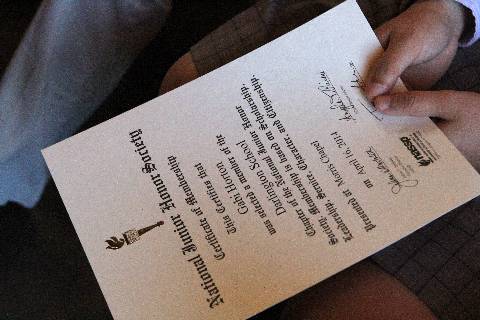 National Junior Honor Society
Certificate of Membership
This Certifies that
Gaby Horton
was selected a member of the
Darlington School
Chapter of the National Junior Honor
Society. Membership is based on Scholarship,
Leadership, Service, Character, and Citizenship.
Presented at Morris Chapel
on April 16, 2014